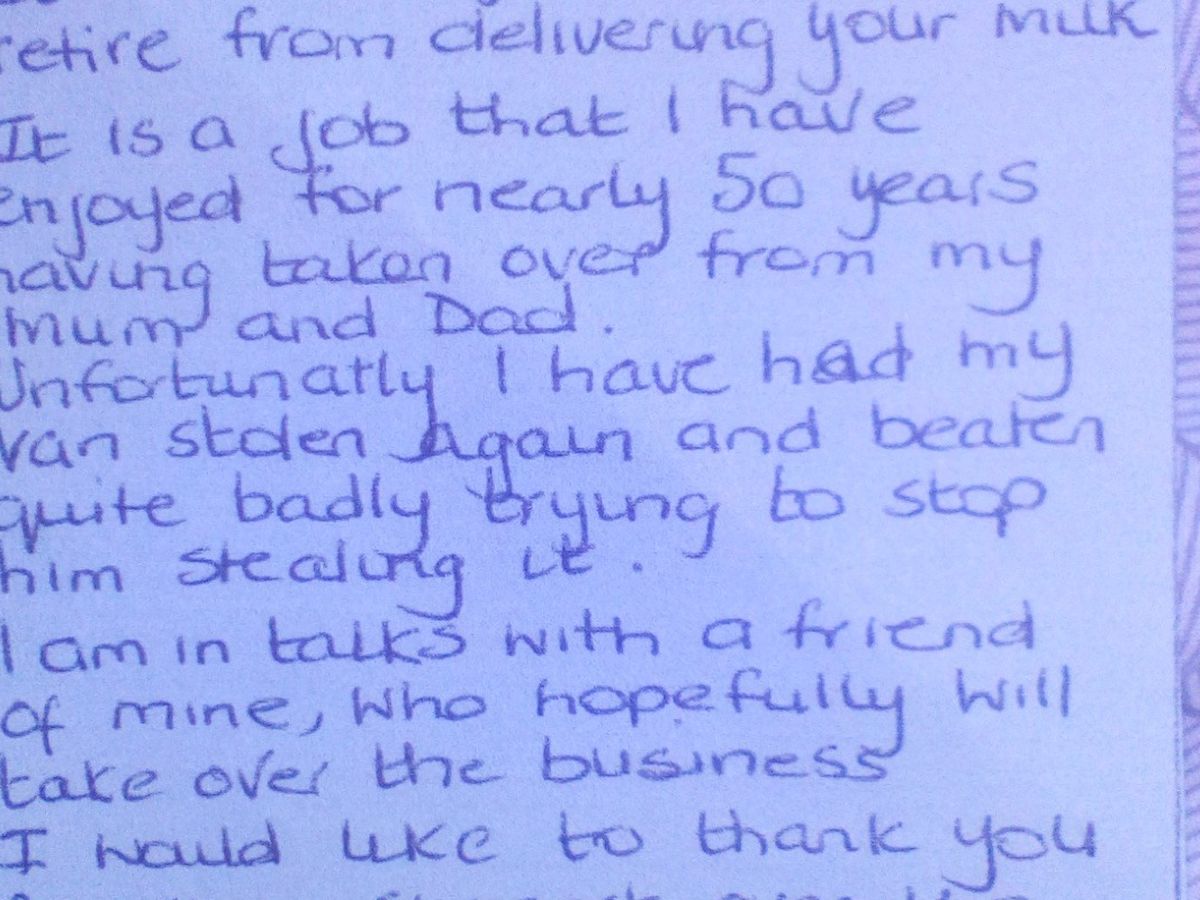 retire from delivering your milk
It is a job that I have
enjoyed for nearly 50 years
having taken over from my
mum and Dad.
Unfortunatly I have had my
van stolen Again and beaten
quite badly trying to stop
him stealing it.
I am in talks with a friend
of mine, who hopefully will
take over the business
I would like to thank you